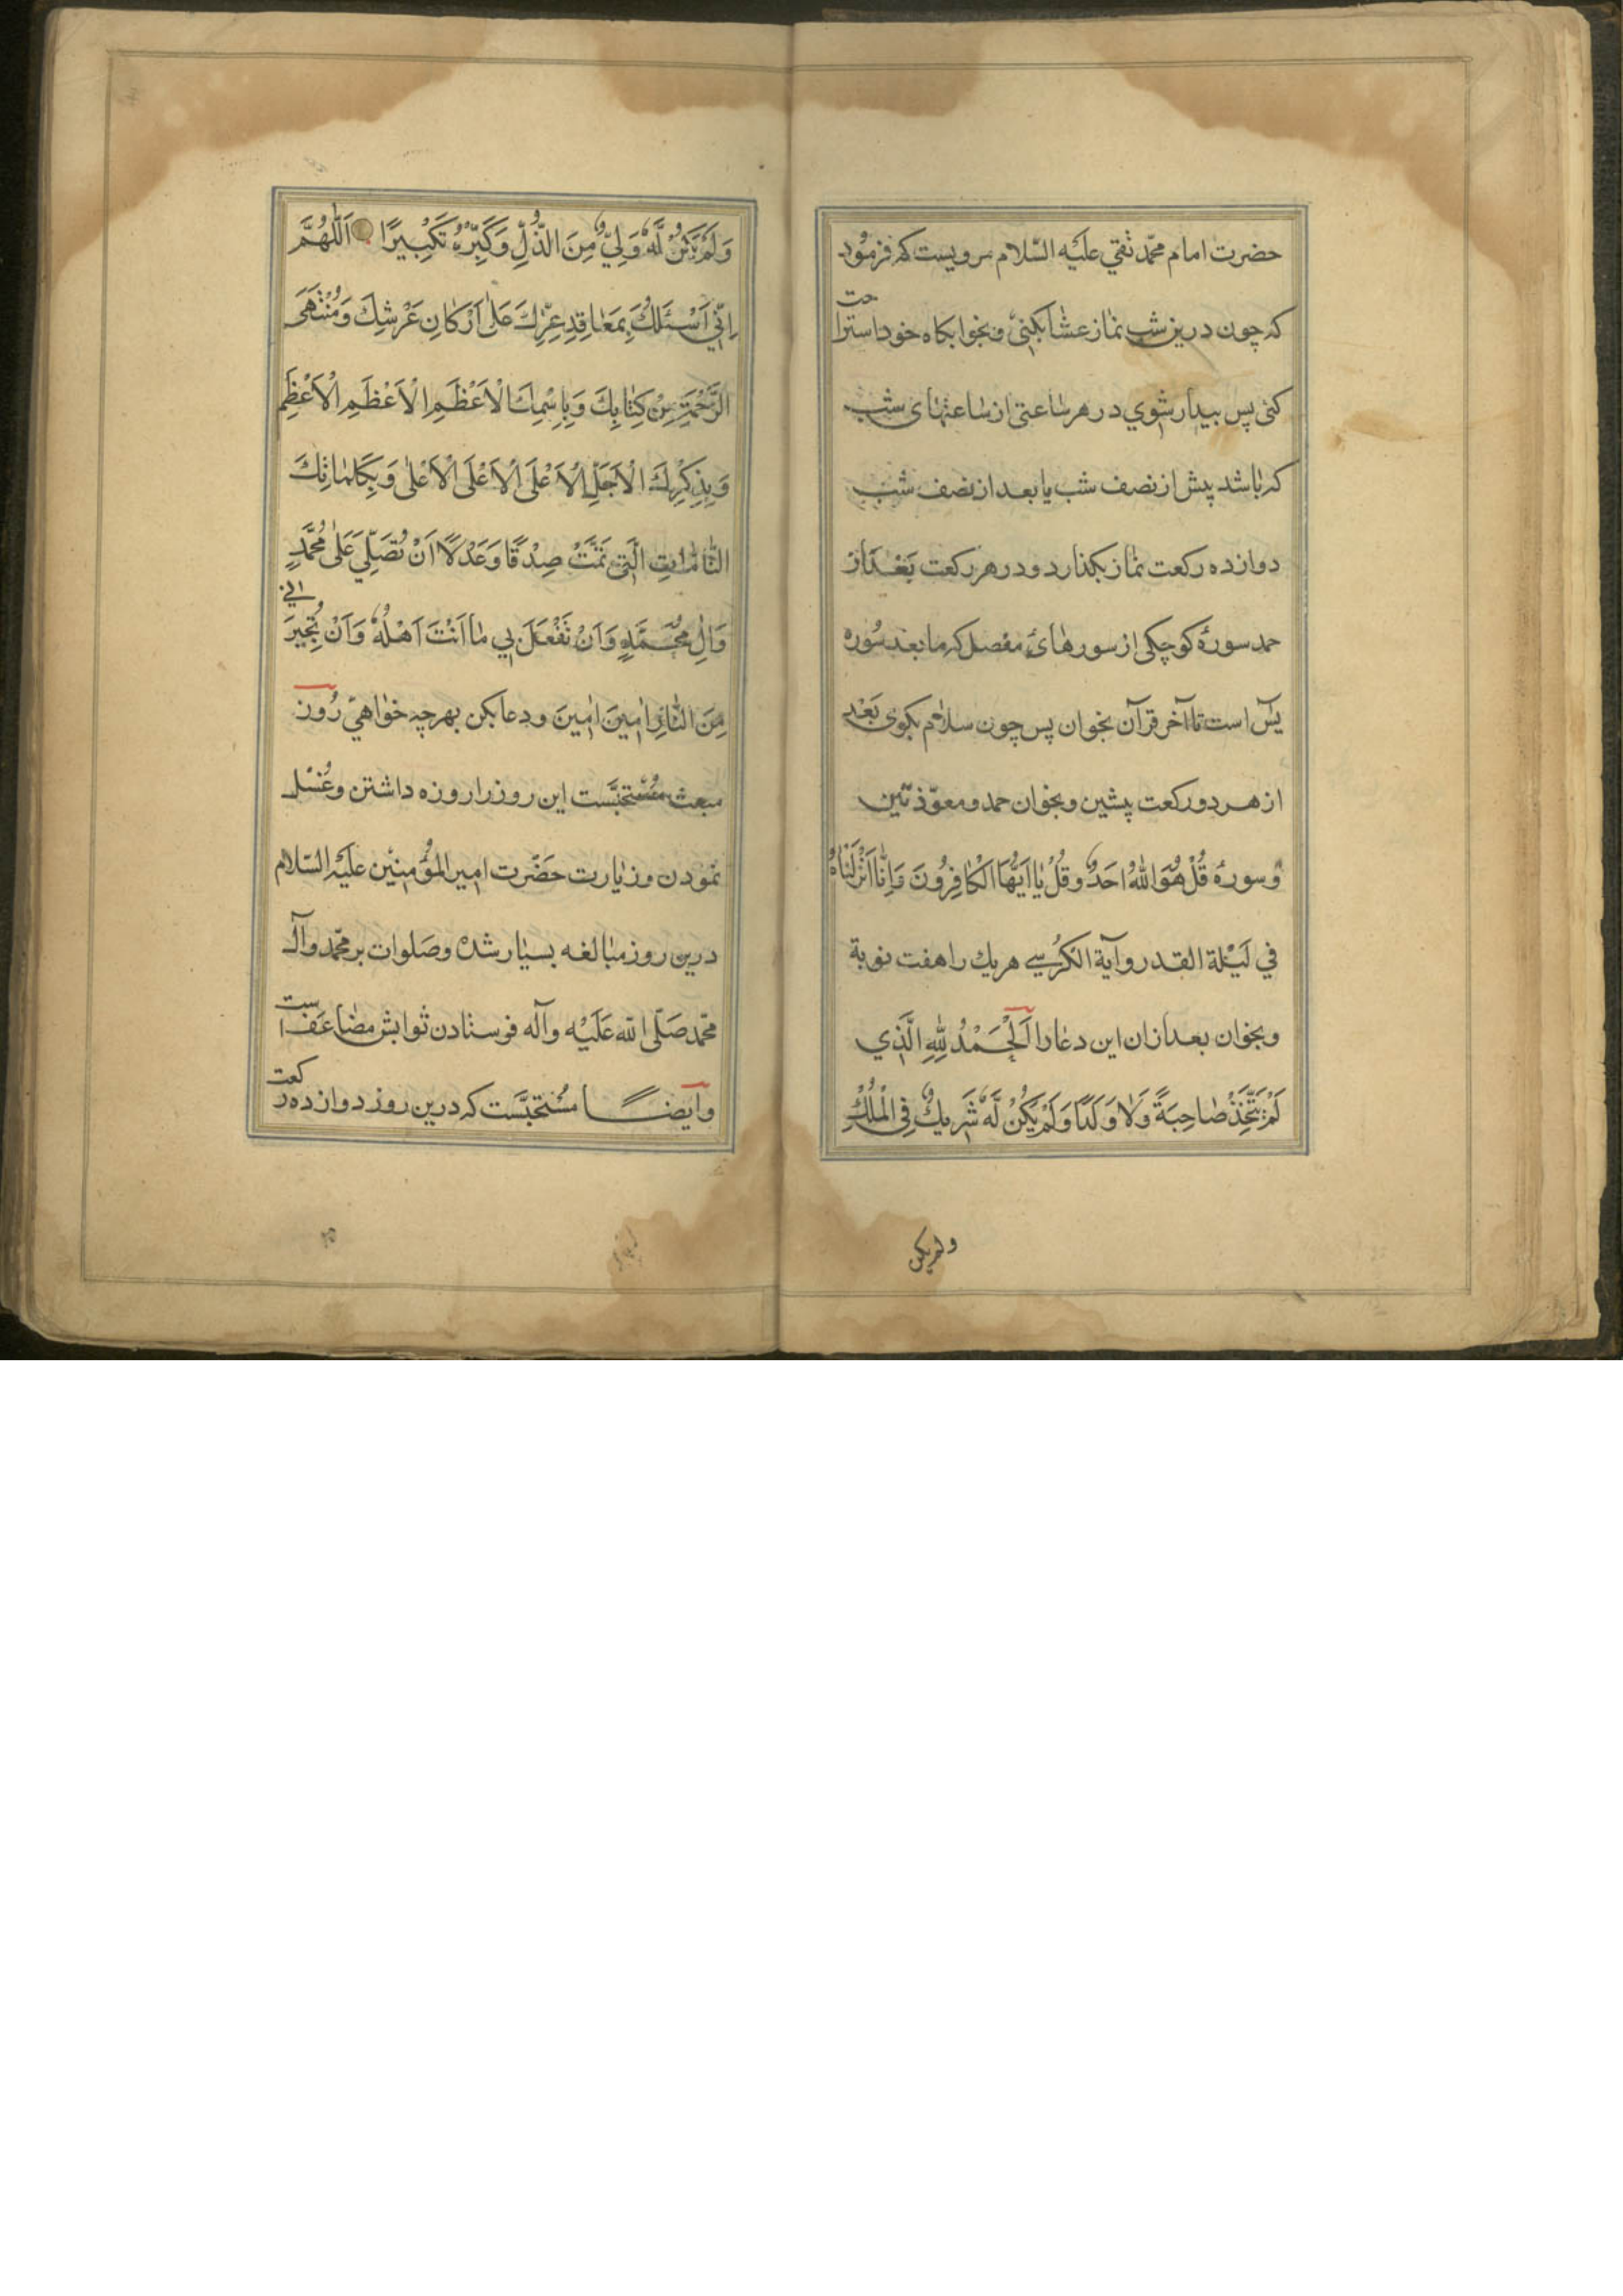 حضرت امام محمّد تقي عليه السّلام مرويست كه فرمُود
كه چون درين شب نماز عشا بكنىٰ و بخوابكاه خود استراحت
كنى پس بيدار شوي در هر ساعتى از ساعتهاى شب
كه باشد پيش از نصف شب يا بعد از نصف شب
دوازده ركعت نماز بكذارد و در هر ركعت بَعْد از
حمد سورۀ كوچكى از سورهاى مفصل كه ما بعد سُوره
يسٓ است تا آخر قرآن بخوان پس چون سلام بكوى بَعْد
از هر دو ركعت پيشين و بخوان حمد و معوّذتين
وَسورهٔ قُلْ هُوَ اللّٰهُ اَحَدٌ وَ قُلْ يٰا اَيُّهَا الْكٰافِرُونَ وَ اِنّٰا اَنْزَلْنٰاهُ
في لَيْلة القدر و آية الكُرسي هر يك را هفت نوبة
و بخوان بعد ازان اين دعا را اَلْحَمْدُ لِلّٰهِ الَّذِي
لَمْ يَتَّخِذْ صٰاحِبَةً وَلاٰ وَلَدًا وَلَمْ يَكُنْ لَهُ شَرِيكٌ فِي الْمُلْكِ
ولم يكن
وَلَمْ يَكُنْ لَهُ وَلِيٌّ مِنَ الذُّلِّ وَكَبِّرْهُ تَكْبِيرًا اَللّٰهُمَّ
اِنّي اَسْئَلُكَ بِمَعٰاقِدِ عِزِّكَ عَلىٰ اَرْكٰانِ عَرْشِكَ وَمُنْتَهَى
الرَّحْمَةِ مِنْ كِتٰابِكَ وَبِاسْمِكَ الْاَعْظَمِ الْاَعْظَمِ الْاَعْظَمِ
وَبِذِكْرِكَ الْاَجَلِّ الْاَعْلَى الْاَعْلَى الْاَعْلىٰ وَبِكَلِمٰاتِكَ
التّٰامّٰاتِ الَّتِي تَمَّتْ صِدْقًا وَعَدْلًا اَنْ تُصَلِّيَ عَلىٰ مُحَمَّدٍ
وَاٰلِ مُحَمَّدٍ وَاَنْ تَفْعَلَ بِي مٰا اَنْتَ اَهْلُهُ وَاَنْ تُجِيرَني
مِنَ النّٰارِ اٰمِينَ اٰمِينَ و دعا بكن بهر چه خواهيٰ رُوز
مبعث مُسْتحبَّست اين روز را روزه داشتن و غُسْل
نمودن و زيٰارت حَضْرت امير المؤمنين عليه السّلام
درين روز مبٰالغه بسيٰار شده و صَلوات بر محمّد و آل
محمّد صَلّى اللّه عَلَيْه و آله فرستادن ثوابش مضٰاعَف است
و اَيضًا مُستحبَّست كه درين روز دوازده ركعت